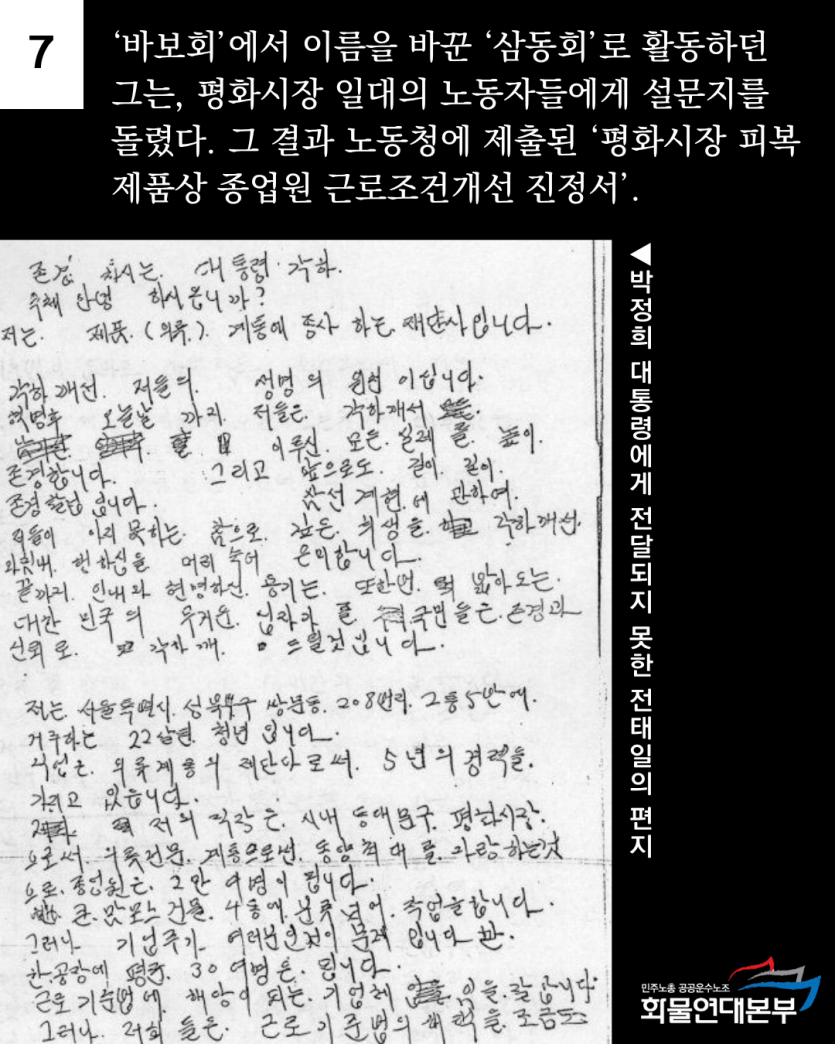 7
‘바보회’에서 이름을 바꾼 ‘삼동회’로 활동하던
그는, 평화시장 일대의 노동자들에게 설문지를
돌렸다. 그 결과 노동청에 제출된 ‘평화시장 피복
제품상 종업원 근로조건개선 진정서’.
존경 하시는. 대통령 각하.
옥체 안녕 하시옵니까?
저는. 제품. (의류). 계통에 종사 하는 재단사입니다.
각하께선. 저들의. 생명의 원천 이십니다.
혁명후 오늘날 까지 저들은. 각하께서
이루신. 모든. 실제를. 높이.
존경합니다. 그리고 앞으로도. 길이. 길이.
존경할 겁니다. 삼선개헌.에 관하여.
저들이 아지 못하는. 참으로. 깊은. 희생을. 각하께선.
머리 숙여 은미합니다.
끝까지. 인내와 현명하신. 용기는. 또한번. 밝아오는.
대한 민국의 무거운. 국민들은. 존경과
신뢰로. 각하께. 드릴것 입니다.
저는. 서울특별시. 성북구 쌍문동. 208번지. 2통 5반에.
거주하는 22살된. 청년 입니다.
직업은. 의류계통의 재단사로써. 5년의 경력을.
가지고 있습니다.
저의 직장은. 시내 동대문구. 평화시장.
으로써. 의류전문. 계통으로썬. 동양 최대를. 자랑하는것
으로. 종업원은. 2만 여명이 됩니다.
큰. 맛모스 건물. 4동에. 분류되어. 작업을합니다.
그러나 기업주가 여러분인것이 문제 입니다만.
한.공장에 평균. 30여명은. 됩니다.
근로기준법에. 해당이 되는. 기업체 임을. 잘 압니다.
그러나. 저희들은. 근로기준법의 혜택을. 조금도
◀박정희 대통령에게 전달되지 못한 전태일의 편지
민주노총 공공운수노조
화물연대본부